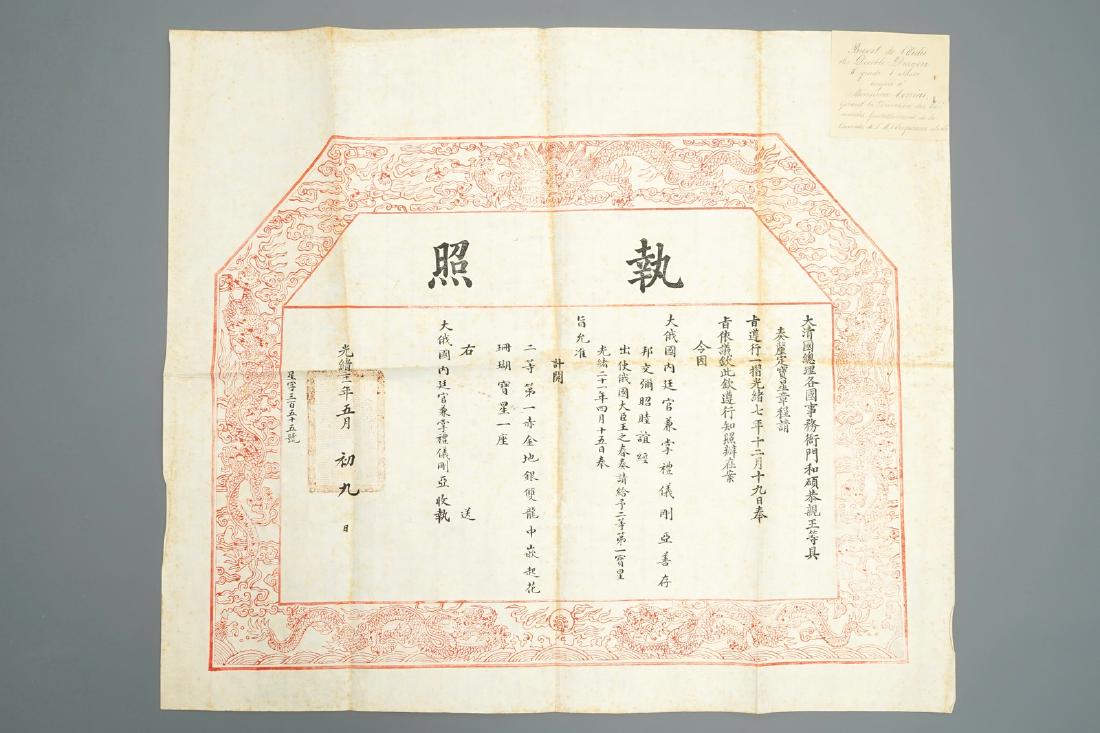 執照
大清國總理各國事務衙門和碩恭親王等具
奏釐定寶星章程請
旨遵行一摺光緒七年十二月十九日奉
旨依議欽此欽遵行知照辦在案
今因
大俄國內廷官兼掌禮儀剛亞善存
邦交彌昭睦誼經
出使俄國大臣王之春奏請給予二等第一寶星
光緒二十一年四月十五日奉
旨允准
計開
二等第一赤金地銀雙龍中嵌起花
珊瑚寶星一座
右送
大俄國內廷官兼掌禮儀剛亞收執
光緒二十一年五月初九日
字三百五十五號
Brevet de l'Ordre
du Double Dragon
Monsieur